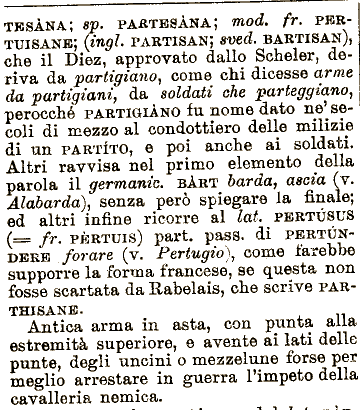 TESÀNA; sp. PARTESÀNA; mod. fr. PER-
TUISANE; (ingl. PARTISAN; sved. BARTISAN),
che il Diez, approvato dallo Scheler, de-
riva da partigiano, come chi dicesse arme
da partigiani, da soldati che parteggiano,
perocché PARTIGIÀNO fu nome dato ne' se-
coli di mezzo al condottiero delle milizie
di un PARTÍTO, e poi anche ai soldati.
Altri ravvisa nel primo elemento della
parola il germanic. BÀRT barda, ascia (v.
Alabarda), senza però spiegare la finale;
ed altri infine ricorre al lat. PERTÚSUS
(= fr. PÈRTUIS) part. pass. di PERTÚN-
DERE forare (v. Pertugio), come farebbe
supporre la forma francese, se questa non
fosse scartata da Rabelais, che scrive PAR-
THISANE.
Antica arma in asta, con punta alla
estremità superiore, e avente ai lati delle
punte, degli uncini o mezzelune forse per
meglio arrestare in guerra l'impeto della
cavalleria nemica.